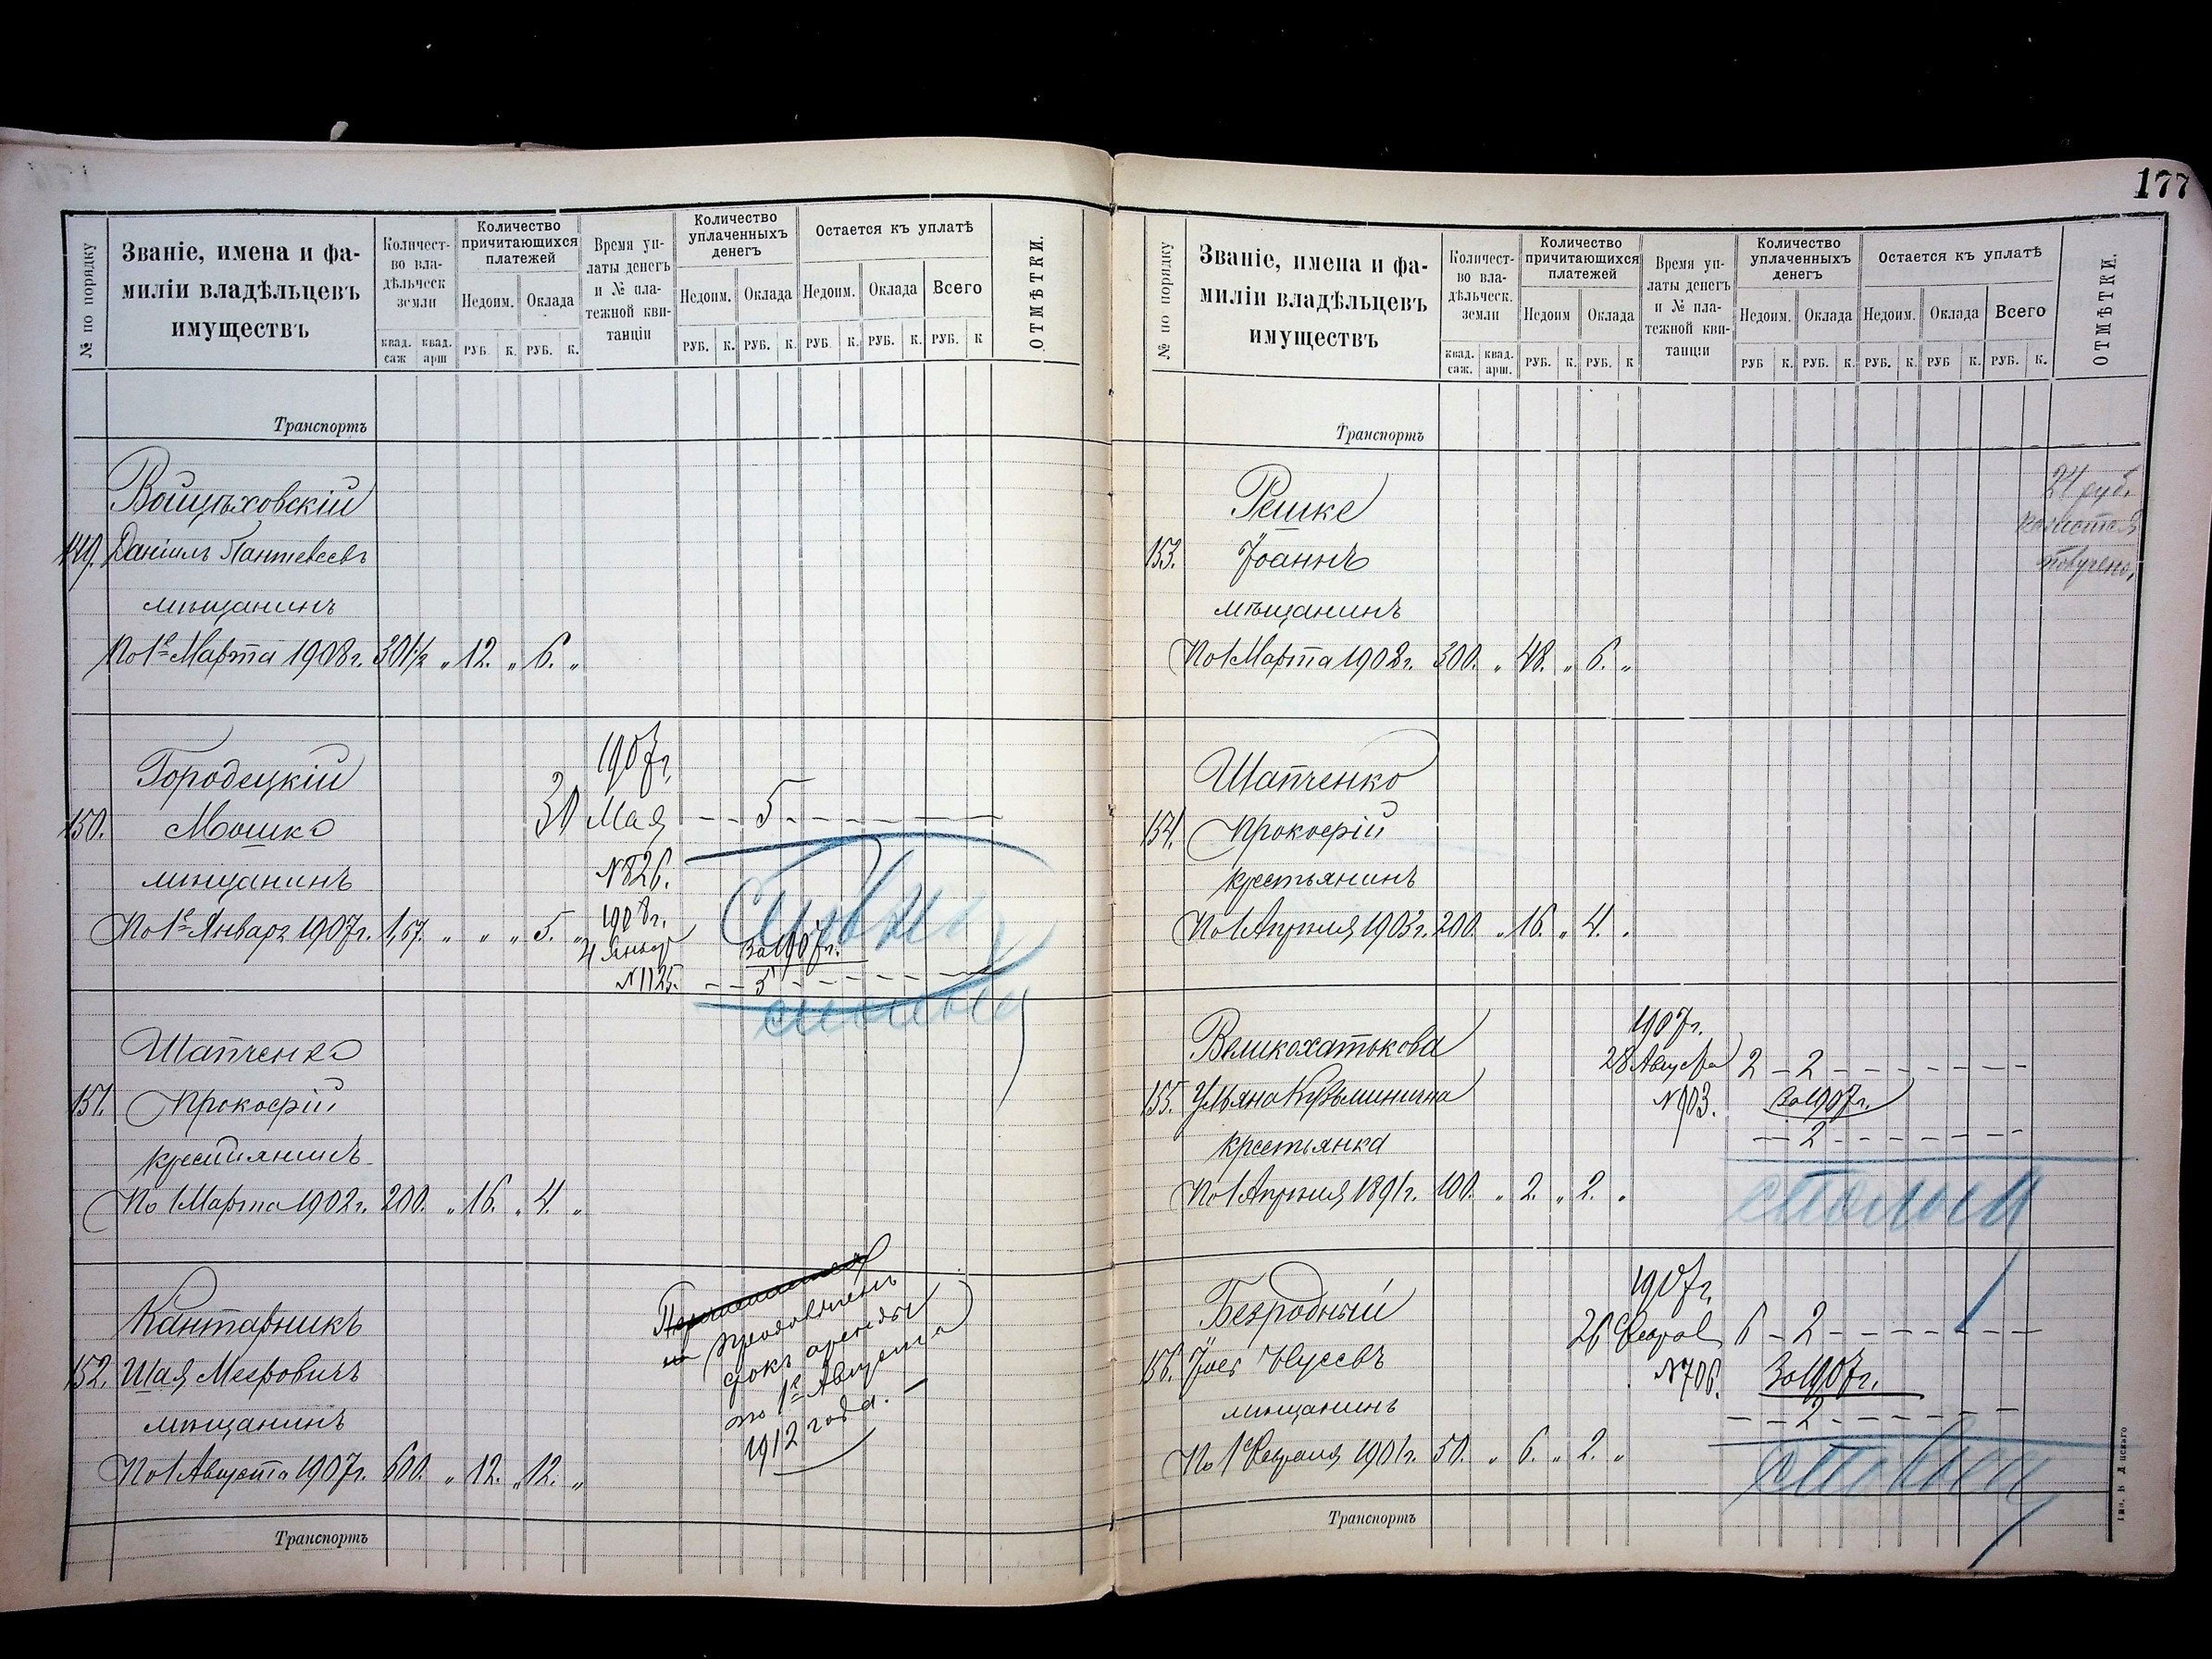 177
№ по порядку
Званіе, имена и фа-
миліи владѣльцевъ
имуществъ
Количест-
во вла-
дѣльческ
земли
квад. саж
квад. арш
Количество
причитающихся
платежей
Недоим. Оклада
РУБ К. РУБ. К.
Время уп-
латы денегъ
и № пла-
тежной кви-
танціи
Количество
уплаченныхъ
денегъ
Недоим. Оклада
РУБ. К. РУБ. К.
Остается къ уплатѣ
Недоим. Оклада Всего
РУБ К. РУБ. К. РУБ. К
ОТМѢТКИ.
Транспортъ
Войцѣховскій
149. Даніилъ
мѣщанинъ
По 1е Марта 1908 г. 301½ „ 12. „ 6. „
Городецкій
150. Мошко
мѣщанинъ
По 1е Январ 1907 г. 1,67. „ „ „ 5. „
1907 г.
30 Мая — — 5 —
№ 826.
1908 г.
4 Январ
За 1907 г.
№ 1125. — — 5 —
Шапченко
151. Прокофій
крестьянинъ
По 1 Марта 1902 г. 200. „ 16. „ 4. „
Кантарникъ
152. Шая Мееровичъ
мѣщанинъ
По 1 Августа 1907 г. 600. „ 12. „ 12. „
продолженъ
срокъ аренды
по 1е Августа
1912 года.
Транспортъ
№ по порядку
Званіе, имена и фа-
миліи владѣльцевъ
имуществъ
Количест-
во вла-
дѣльческ.
земли
квад. саж.
квад. арш.
Количество
причитающихся
платежей
Недоим Оклада
РУБ. К. РУБ. К
Время уп-
латы денегъ
и № пла-
тежной кви-
танціи
Количество
уплаченныхъ
денегъ
Недоим. Оклада
РУБ К. РУБ. К.
Остается къ уплатѣ
Недоим. Оклада Всего
РУБ. К. РУБ К. РУБ. К.
ОТМѢТКИ.
Транспортъ
Решке
153. Іоаннъ
мѣщанинъ
По 1 Марта 1908 г. 300. „ 48. „ 6. „
24 руб.
Шапченко
154. Прокофій
крестьянинъ
По 1 Апрѣля 1903 г. 200. „ 16. „ 4. „
Великохатькова
155. Ульяна Кузьминична
крестьянка
По 1 Апрѣля 1891 г. 100. „ 2. „ 2. „
1907 г.
28 Августа 2 — 2 —
№ 903. За 1907 г.
— — 2 —
Безродный
156.
мѣщанинъ
По 1е Февраля 1901 г. 50. „ 6. „ 2. „
1907 г.
26 Феврал 6 — 2 —
№ 706. За 1907 г.
— — 2 —
Транспортъ